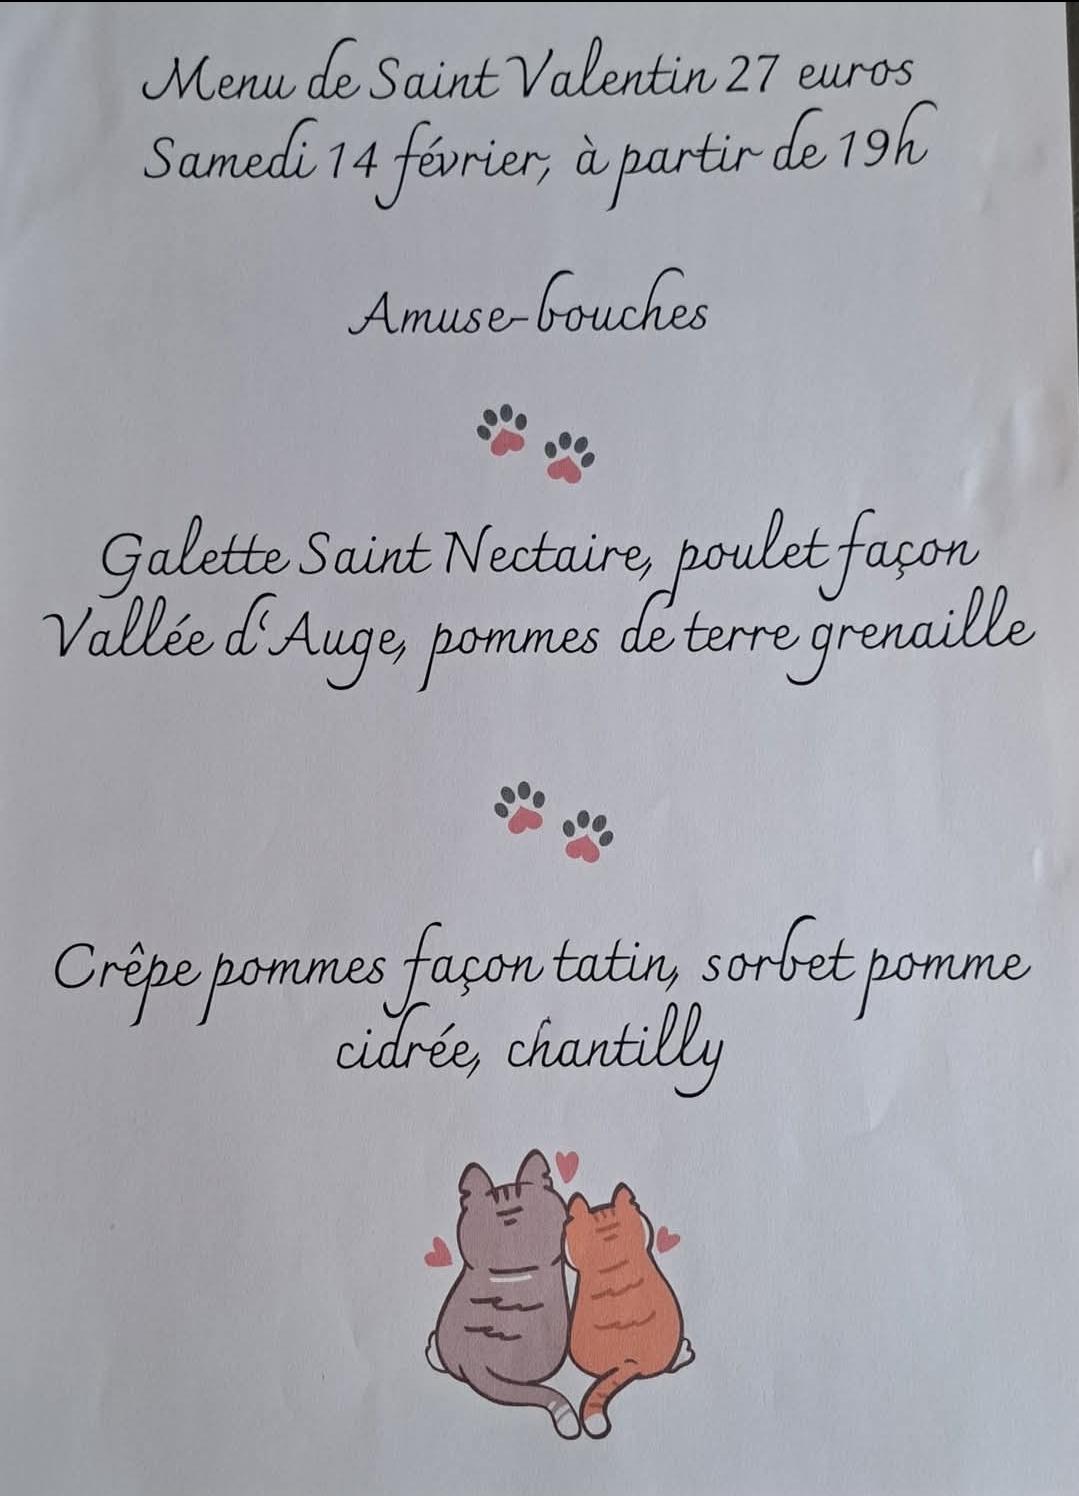 Menu de Saint Valentin 27 euros
Samedi 14 février, à partir de 19h
Amuse-bouches
Galette Saint Nectaire, poulet façon
Vallée d'Auge, pommes de terre grenaille
Crêpe pommes façon tatin, sorbet pomme
cidrée, chantilly